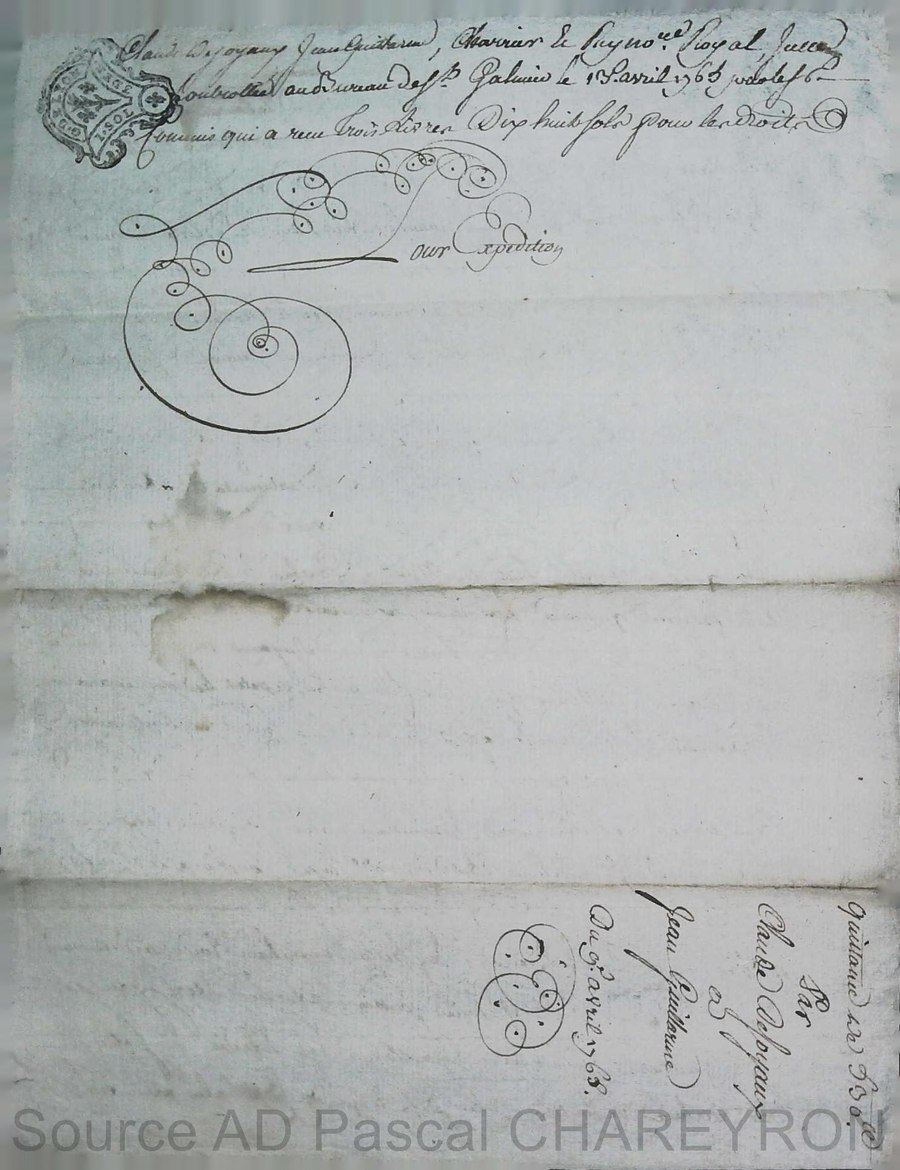 Claude Desoyaux Jean Guillerme, Charrier & Puy no.re Royal
Controllé au Bureau de St. Galmier le 13 avril 1763 par le Sr
Commis qui a recu Trois Livres Dix huit sols pour les droits
our Expedition
Quittance de 530
Par
Claude Desoyaux
a
Jean Guillerme
Du 9 avril 1763.
Source AD Pascal CHAREYRON